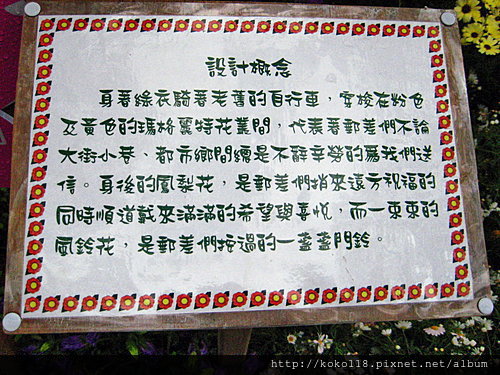 設計概念
身著綠衣騎著老舊的自行車，穿梭在粉色
及黃色的瑪格麗特花叢間，代表著郵差們不論
大街小巷、都市鄉間總是不辭辛勞的為我們送
信。身後的鳳梨花，是郵差們捎來遠方祝福的
同時順道載來滿滿的希望與喜悅，而一束束的
風鈴花，是郵差們按過的一盞盞門鈴。
http://koko118.pixnet.net/album